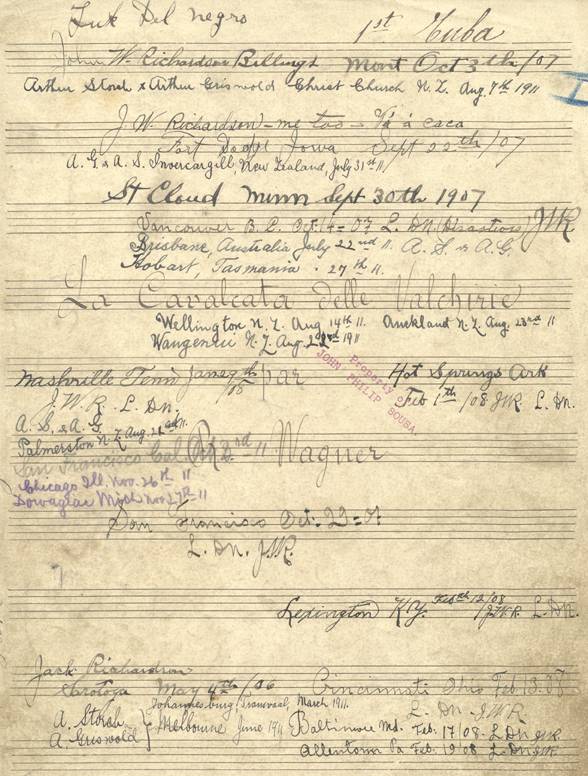 Luk Del negro
1st Tuba
John W. Richardson Billings Mont Oct 3th /07
Arthur Storch & Arthur Griswold Christ Church N.Z. Aug. 7th 1911
J. W. Richardson - me too -
Fort Dodge Iowa Sept 22th /07
A. G. & A. S. Invercargill, New Zealand, July 31st 11
St Cloud Minn Sept 30th 1907
Vancouver B. C. Oct. 14 = 07 L. DN. JWR
Brisbane, Australia July 22nd 11. A. S. & A. G.
Hobart, Tasmania. 27th 11.
La Cavalcata delle Valchirie
Wellington N.Z. Aug 14th 11. Auckland N.Z. Aug. 23rd 11
Wanganui N.Z. Aug. 1911
Property of
JOHN PHILIP SOUSA.
Nashville Tenn Jan 29th /08 par Hot Springs Ark
J. W. R. L. DN. Feb 1th /08 JWR L. DN.
A. S. & A. G.
Palmerston N.Z. Aug. 11.
San Francisco Cal. Oct 2nd 11 R Wagner
Chicago Ill. Nov. 26th 11
Dowagiac Mich Nov 27th 11
San Francisco Oct. 23 = 07
L. DN. JWR.
Lexington KY. Feb 12/08 J.W.R. L. DN.
Jack Richardson
Saratoga May 4th /06 Cincinnati Ohio Feb 13. 08
Johannesburg Transvaal, March 1911. L. DN - JWR
A. Storch Melbourne June 1911 Baltimore Md. Feb. 17/08 - L DN JWR
A. Griswold Allentown Pa Feb. 19/08 L. DN. JWR